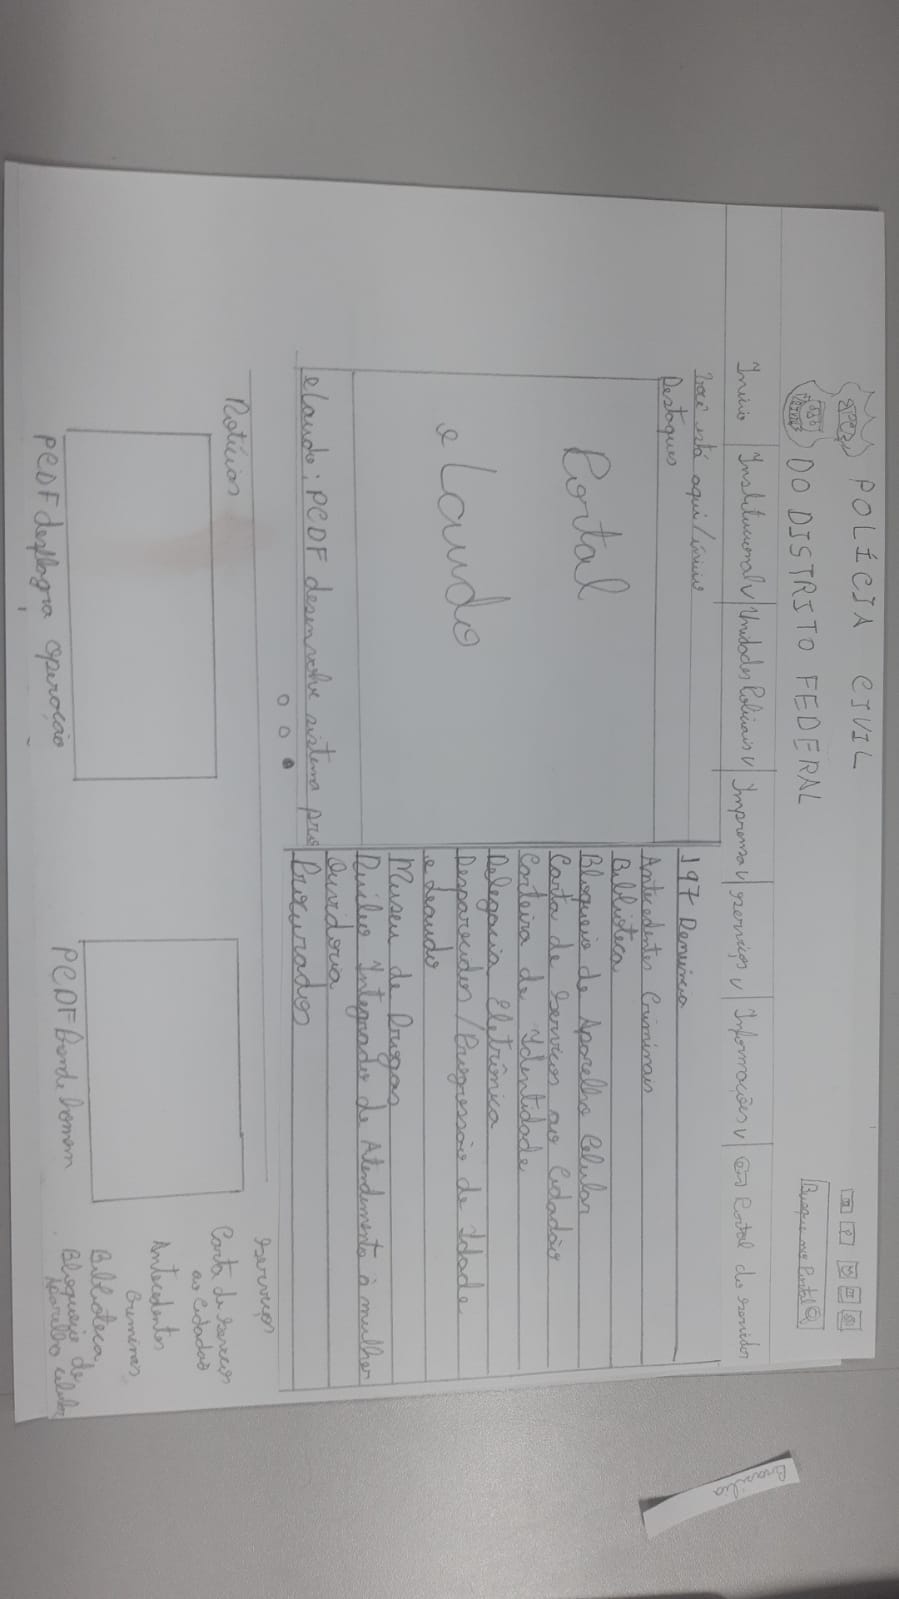 POLÍCIA CIVIL
DO DISTRITO FEDERAL
Busque no Portal
Início
Institucional v
Unidades Policiais v
Imprensa v
serviços v
Informações v
Portal do servidor
Você está aqui/início
Destaques
Portal
eLaudo
eLaudo: PCDF desenvolve sistema pro
197 Denúncia
Antecedentes Criminais
Biblioteca
Bloqueio de Aparelho Celular
Carta de Serviços ao Cidadão
Carteira de Identidade
Delegacia Eletrônica
Desparecidos/Progressão de Idade
e Leaudo
Museu de Drogas
Núcleo Integrado de Atendimento à mulher
Ouvidoria
Procurados
Notícias
PCDF desflagra operação
PCDF homem
Serviços
Carta de Serviços
ao Cidadão
Antecedentes
Criminas
Biblioteca
Bloqueio de
Aparelho Celular
Brasília